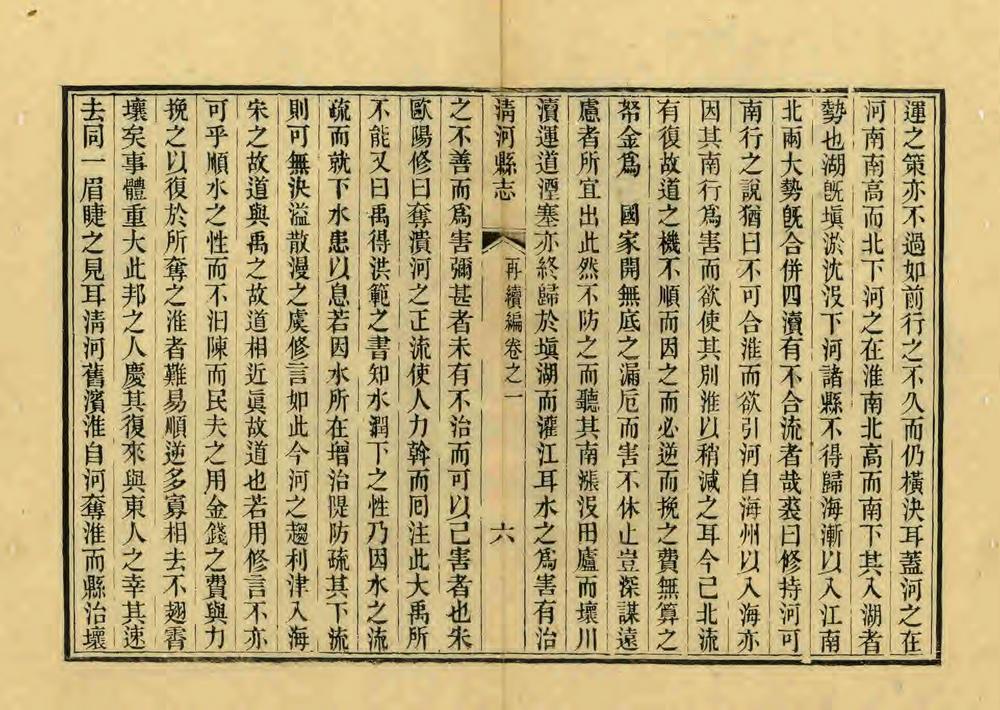 運之策亦不過如前行之不久而仍橫決耳蓋河之在
河南南高而北下河之在淮南北高而南下其入湖者
勢也湖旣塡淤沈沒下河諸縣不得歸海漸以入江南
北兩大勢旣合併四瀆有不合流者哉裘曰修持河可
南行之說猶曰不可合淮而欲引河自海州以入海亦
因其南行爲害而欲使其別淮以稍減之耳今已北流
有復故道之機不順而因之而必逆而挽之費無算之
帑金爲　國家開無底之漏卮而害不休止豈深謀遠
慮者所宜出此然不防之而聽其南漲沒田廬而壞川
瀆運道湮塞亦終歸於塡湖而灌江耳水之爲害有治
清河縣志　再續編卷之一　六
之不善而爲害彌甚者未有不治而可以已害者也朱
歐陽修曰奪潰河之正流使人力斡而囘注此大禹所
不能又曰禹得洪範之書知水潤下之性乃因水之流
疏而就下水患以息若因水所在增治隄防疏其下流
則可無決溢散漫之虞修言如此今河之趨利津入海
宋之故道與禹之故道相近眞故道也若用修言不亦
可乎順水之性而不汩陳而民夫之用金錢之費與力
挽之以復於所奪之淮者難易順逆多寡相去不翅霄
壤矣事體重大此邦之人慶其復來與東人之幸其速
去同一眉睫之見耳淸河舊濱淮自河奪淮而縣治壞